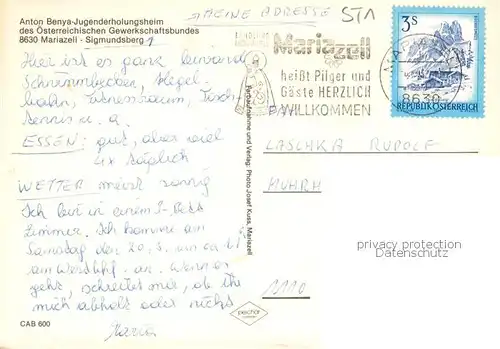 MEINE ADRESSE
Anton Benya-Jugenderholungsheim
des Österreichischen Gewerkschaftsbundes
8630 Mariazell - Sigmundsberg 1
Hier ist es ganz
Schwimmbecken, Kegel-
bahn, Fitnessraum, Tisch-
tennis u. a.
ESSEN: gut, aber viel
4x täglich
WETTER meist sonnig
Ich bin in einem 5-Bett
Zimmer. Ich komme am
Samstag den 20.5. um ca
am Westbhf. an. Wenn es
geht, schreibt mir, ob ihr
mich abholt oder nicht
CAB 600
Farbaufnahme und Verlag: Photo Josef Kuss, Mariazell
Mariazell
heißt Pilger und
Gäste HERZLICH
WILLKOMMEN
3S
REPUBLIK ÖSTERREICH
8630
LASCHKA RUDOLF
privacy protection
Datenschutz